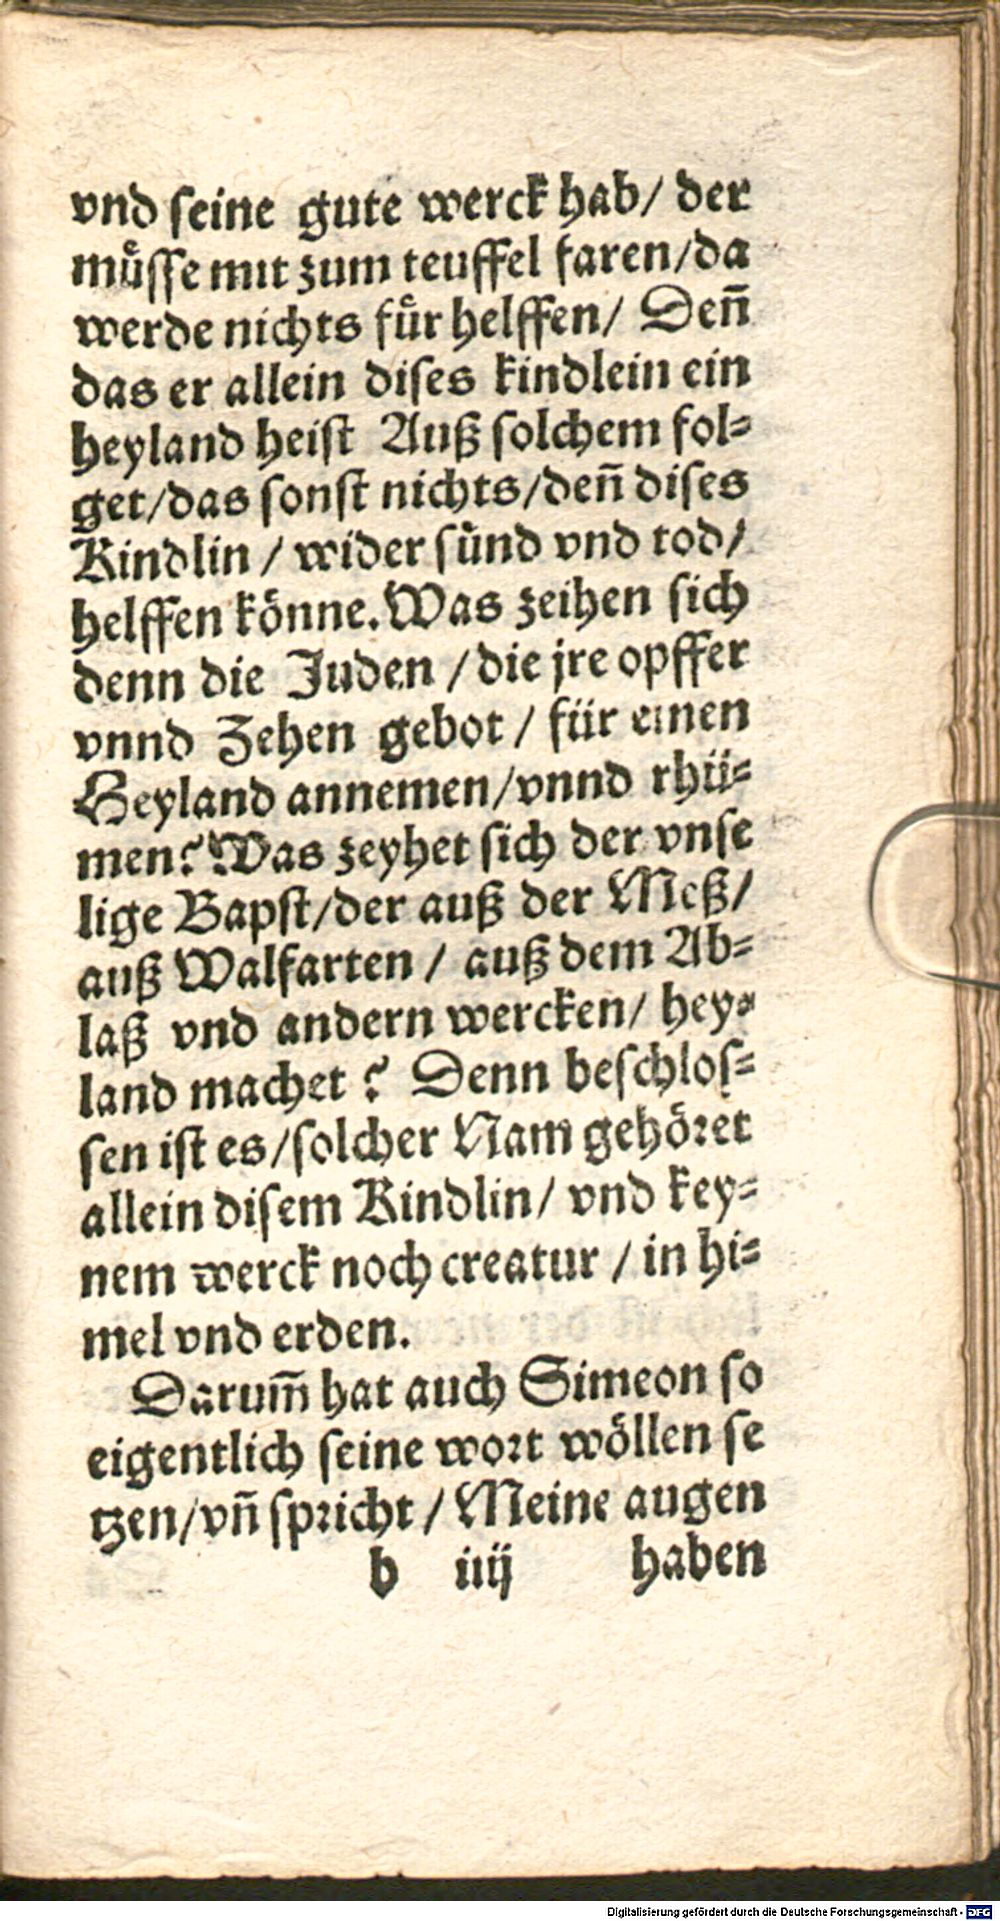 vnd seine gute werck hab/ der
müsse mit zum teuffel faren/da
werde nichts für helffen/ Deñ
das er allein dises kindlein ein
heyland heist Auß solchem fol⸗
get/das sonst nichts/deñ dises
Kindlin / wider sünd vnd tod/
helffen könne. Was zeihen sich
denn die Juden / die jre opffer
vnnd Zehen gebot / für einen
Heyland annemen/vnnd rhü⸗
men? Was zeyhet sich der vnse
lige Bapst/der auß der Meß/
auß Walfarten / auß dem Ab⸗
laß vnd andern wercken/ hey⸗
land machet ? Denn beschlos⸗
sen ist es/solcher Nam gehöret
allein disem Kindlin/ vnd key⸗
nem werck noch creatur / in hi⸗
mel vnd erden.
Darum̃ hat auch Simeon so
eigentlich seine wort wöllen se
tzen/vñ spricht / Meine augen
b iiij haben
Digitalisierung gefördert durch die Deutsche Forschungsgemeinschaft - DFG